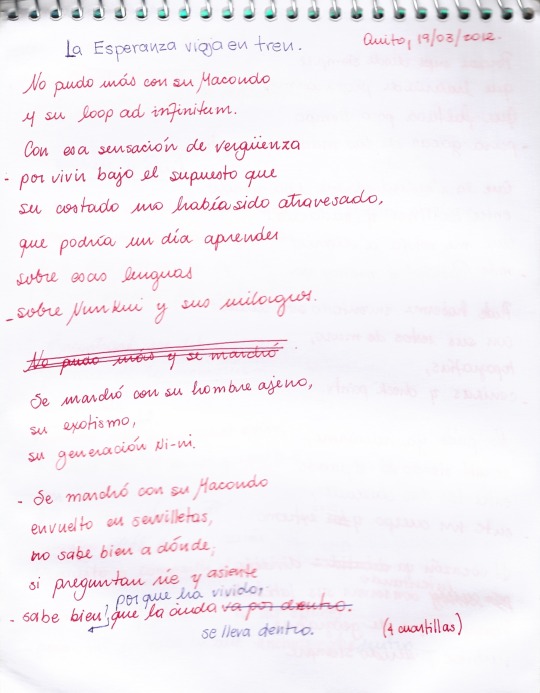 La Esperanza viaja en tren.
Quito, 19/03/2012.
No pudo más con su Macondo
y su loop ad infinitum.
Con esa sensación de vergüenza
- por vivir bajo el supuesto que
su costado no había sido atravesado,
que podría un día aprender
sobre esas lenguas
- sobre Nunkui y sus milagros.
No pudo más y se marchó
Se marchó con su hombre ajeno,
su exotismo,
su generación Ni-ni.
- Se marchó con su Macondo
envuelto en servilletas,
no sabe bien a dónde,
si preguntan ríe y asiente
por que ha vivido,
- sabe bien, que la duda va por dentro.
se lleva dentro.
(4 cuartillas)